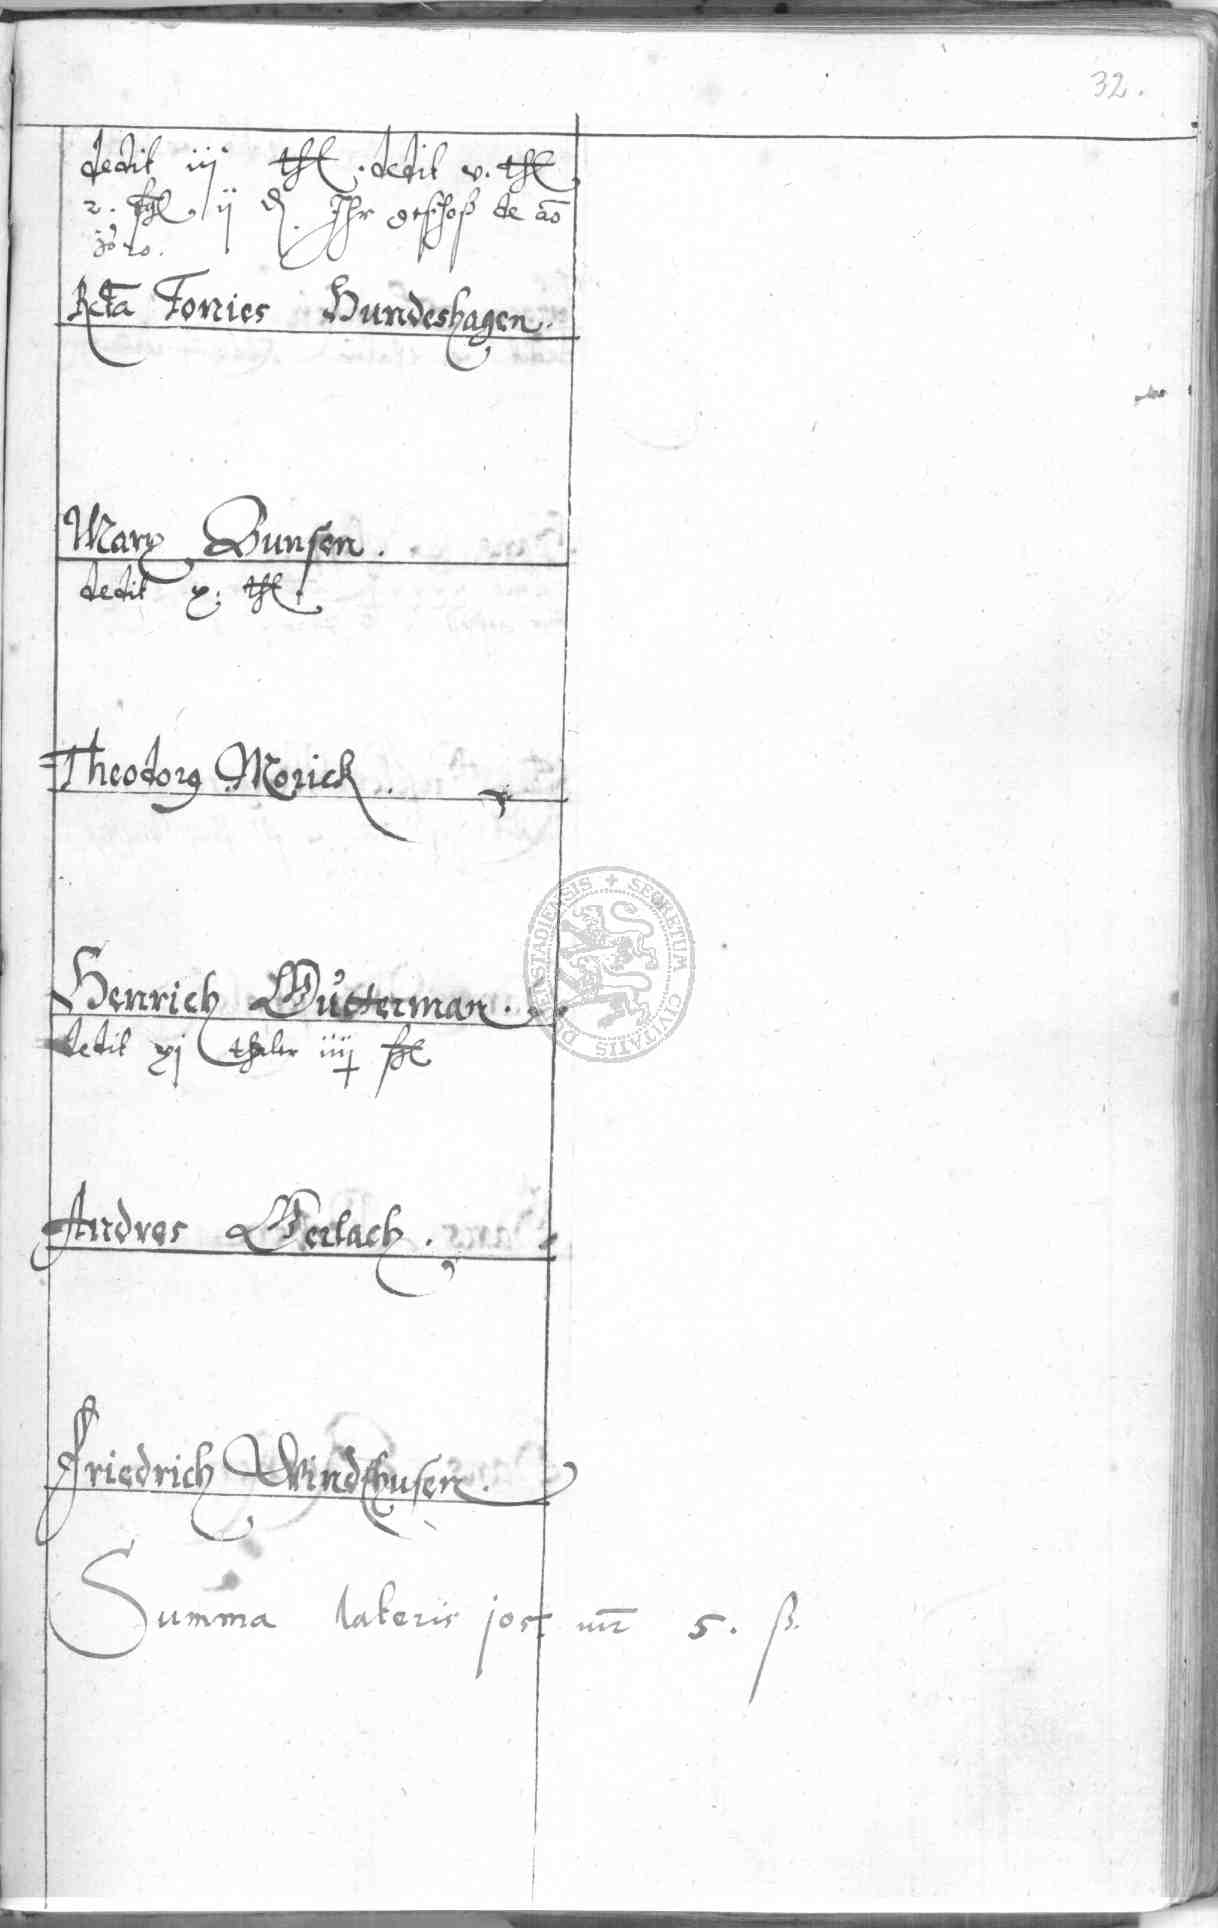 32.
dedit iij thl. dedit v. thl
2. ßl ij d. Ihr geschoß de ao
20.
Rcta Tonies Hundeshagen.
Marx Bunsen.
dedit x. thl.
Theodorg Morick.
Henrich Gutterman.
dedit xj thaler iiij ßl
Andres Gerlach.
Friedrich Windthusen.
Summa lateris jost mr 5. ß.
SECRETUM CIVITATIS DUDENSTADIENSIS